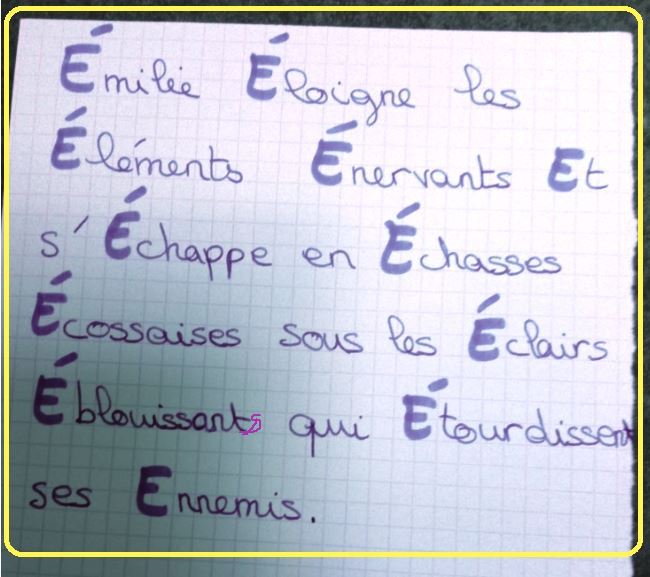 Émilie Éloigne les
Éléments Énervants Et
s'Échappe en Échasses
Écossaises sous les Éclairs
Éblouissants qui Étourdissent
ses Ennemis.